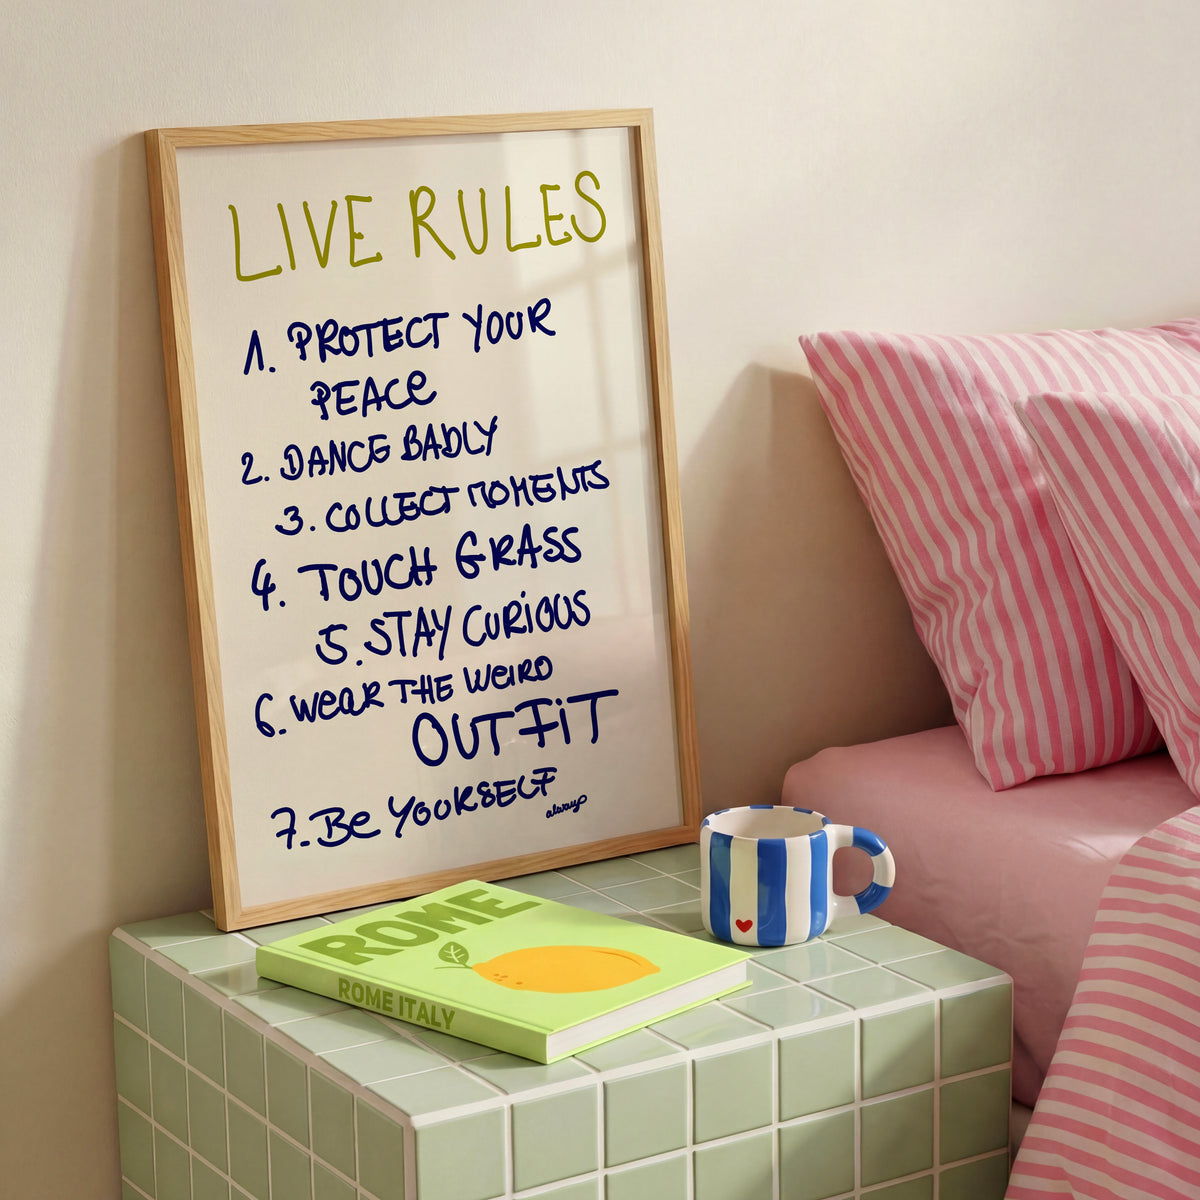 LIVE RULES
1. PROTECT YOUR
PEACE
2. DANCE BADLY
3. COLLECT MOMENTS
4. TOUCH GRASS
5. STAY CURiOUS
6. WeaR THE WeiRD
OUTFiT
7. Be YOURSELF
always
ROME
ROME ITALY